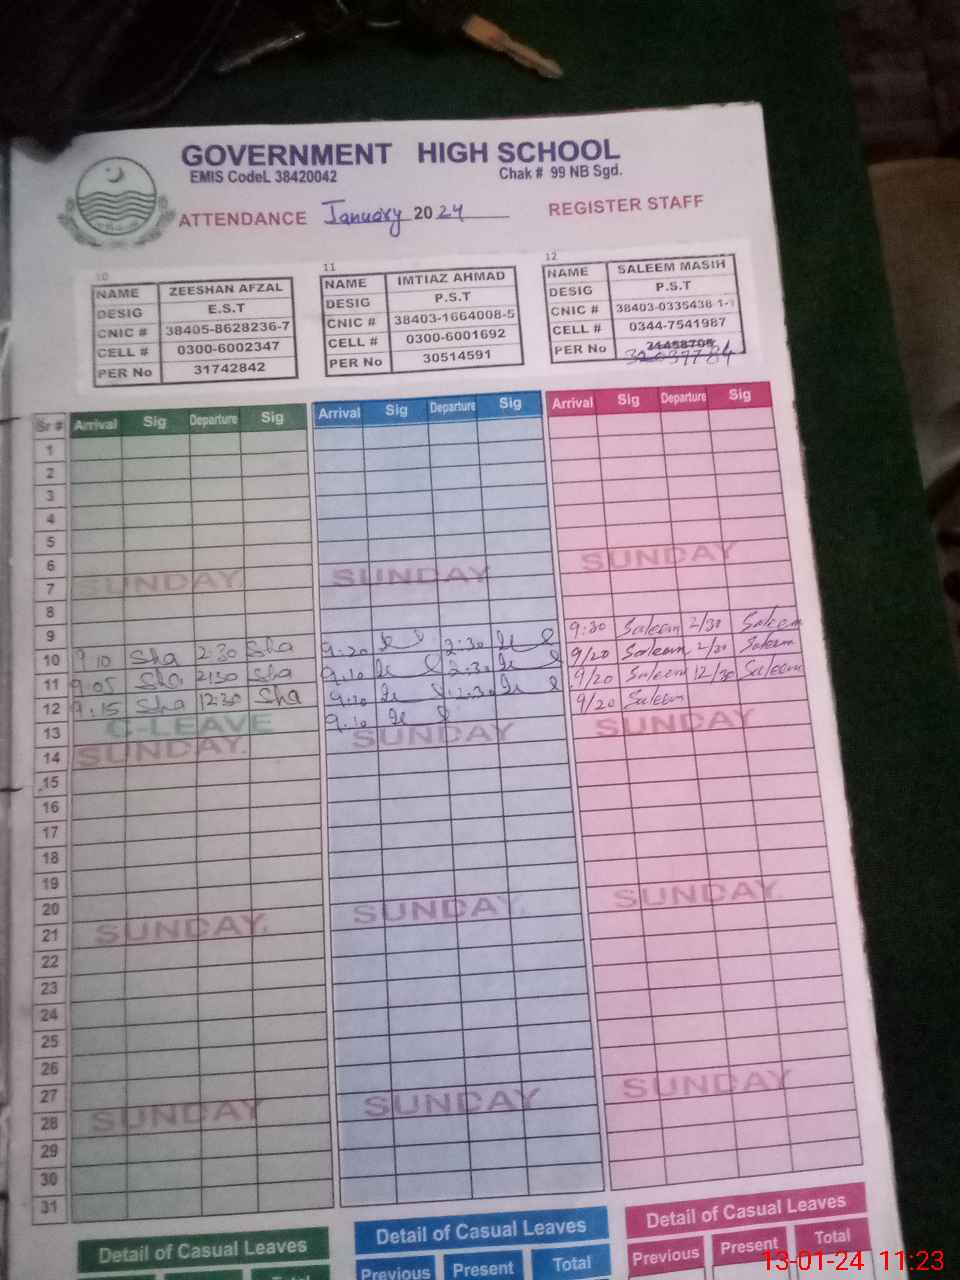 GOVERNMENT HIGH SCHOOL
EMIS CodeL 38420042 Chak # 99 NB Sgd.
ATTENDANCE January 2024 REGISTER STAFF
10
NAME ZEESHAN AFZAL
DESIG E.S.T
CNIC # 38405-8628236-7
CELL # 0300-6002347
PER No 31742842
11
NAME IMTIAZ AHMAD
DESIG P.S.T
CNIC # 38403-1664008-5
CELL # 0300-6001692
PER No 30514591
12
NAME SALEEM MASIH
DESIG P.S.T
CNIC # 38403-0335438-1
CELL # 0344-7541987
PER No
Sr # Arrival Sig Departure Sig Arrival Sig Departure Sig Arrival Sig Departure Sig
1
2
3
4
5
6
7 SUNDAY SUNDAY SUNDAY
8
9 9:30 Saleem 2/30 Saleem
10 9:10 Sha 2:30 Sha 9:20 2:30 9/20 Saleem 2/30 Saleem
11 9:05 Sha 2:30 Sha 9:10 2:30 9/20 Saleem 12/30 Saleem
12 9:15 Sha 12:30 Sha 9:10 12:30 9/20 Saleem
13 C-LEAVE 9:10
14 SUNDAY SUNDAY SUNDAY
15
16
17
18
19
20
21 SUNDAY SUNDAY SUNDAY
22
23
24
25
26
27
28 SUNDAY SUNDAY SUNDAY
29
30
31
Detail of Casual Leaves Detail of Casual Leaves Detail of Casual Leaves
Previous Present Total Previous Present Total
13-01-24 11:23